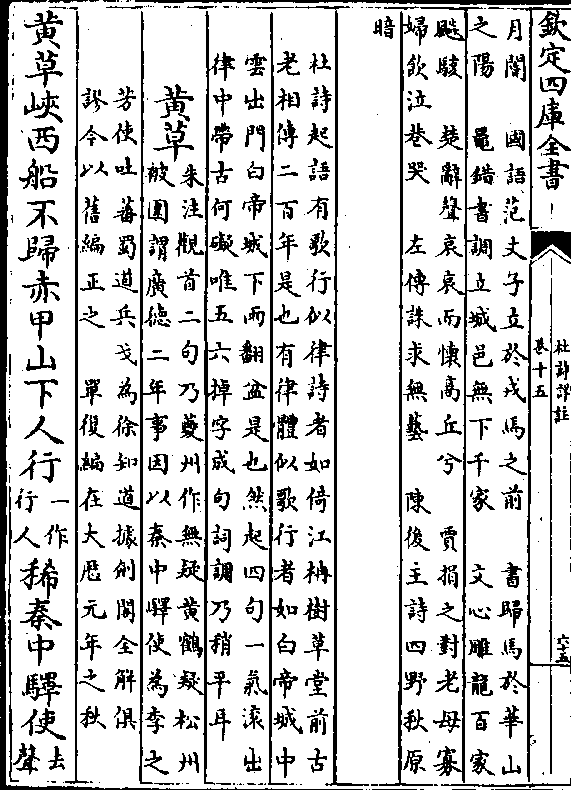 欽定四庫全書
杜詩詳註
卷十五
六十五
月閣　國語范文子立於戎馬之前　書歸馬於華山
之陽　鼂錯書調立城邑無下千家　文心雕龍百家
飈駭　楚辭聲哀哀而懷高丘兮　賈捐之對老母寡
婦飲泣巷哭　左傳誅求無藝　陳後主詩四野秋原
暗
杜詩起語有歌行似律詩者如倚江柟樹草堂前古
老相傳二百年是也有律體似歌行者如白帝城中
雲出門白帝城下雨翻盆是也然起四句一氣滾出
律中帶古何礙唯五六掉字成句詞調乃稍平耳
黃草
朱注觀首二句乃夔州作無疑黃鶴疑松州
被圍謂廣德二年事因以秦中驛使為李之
芳使吐蕃蜀道兵戈為徐知道據劍閣全解俱
謬今以舊編正之　單復編在大厯元年之秋
黃草峽西船不歸赤甲山下人行一作行人稀秦中驛使去聲